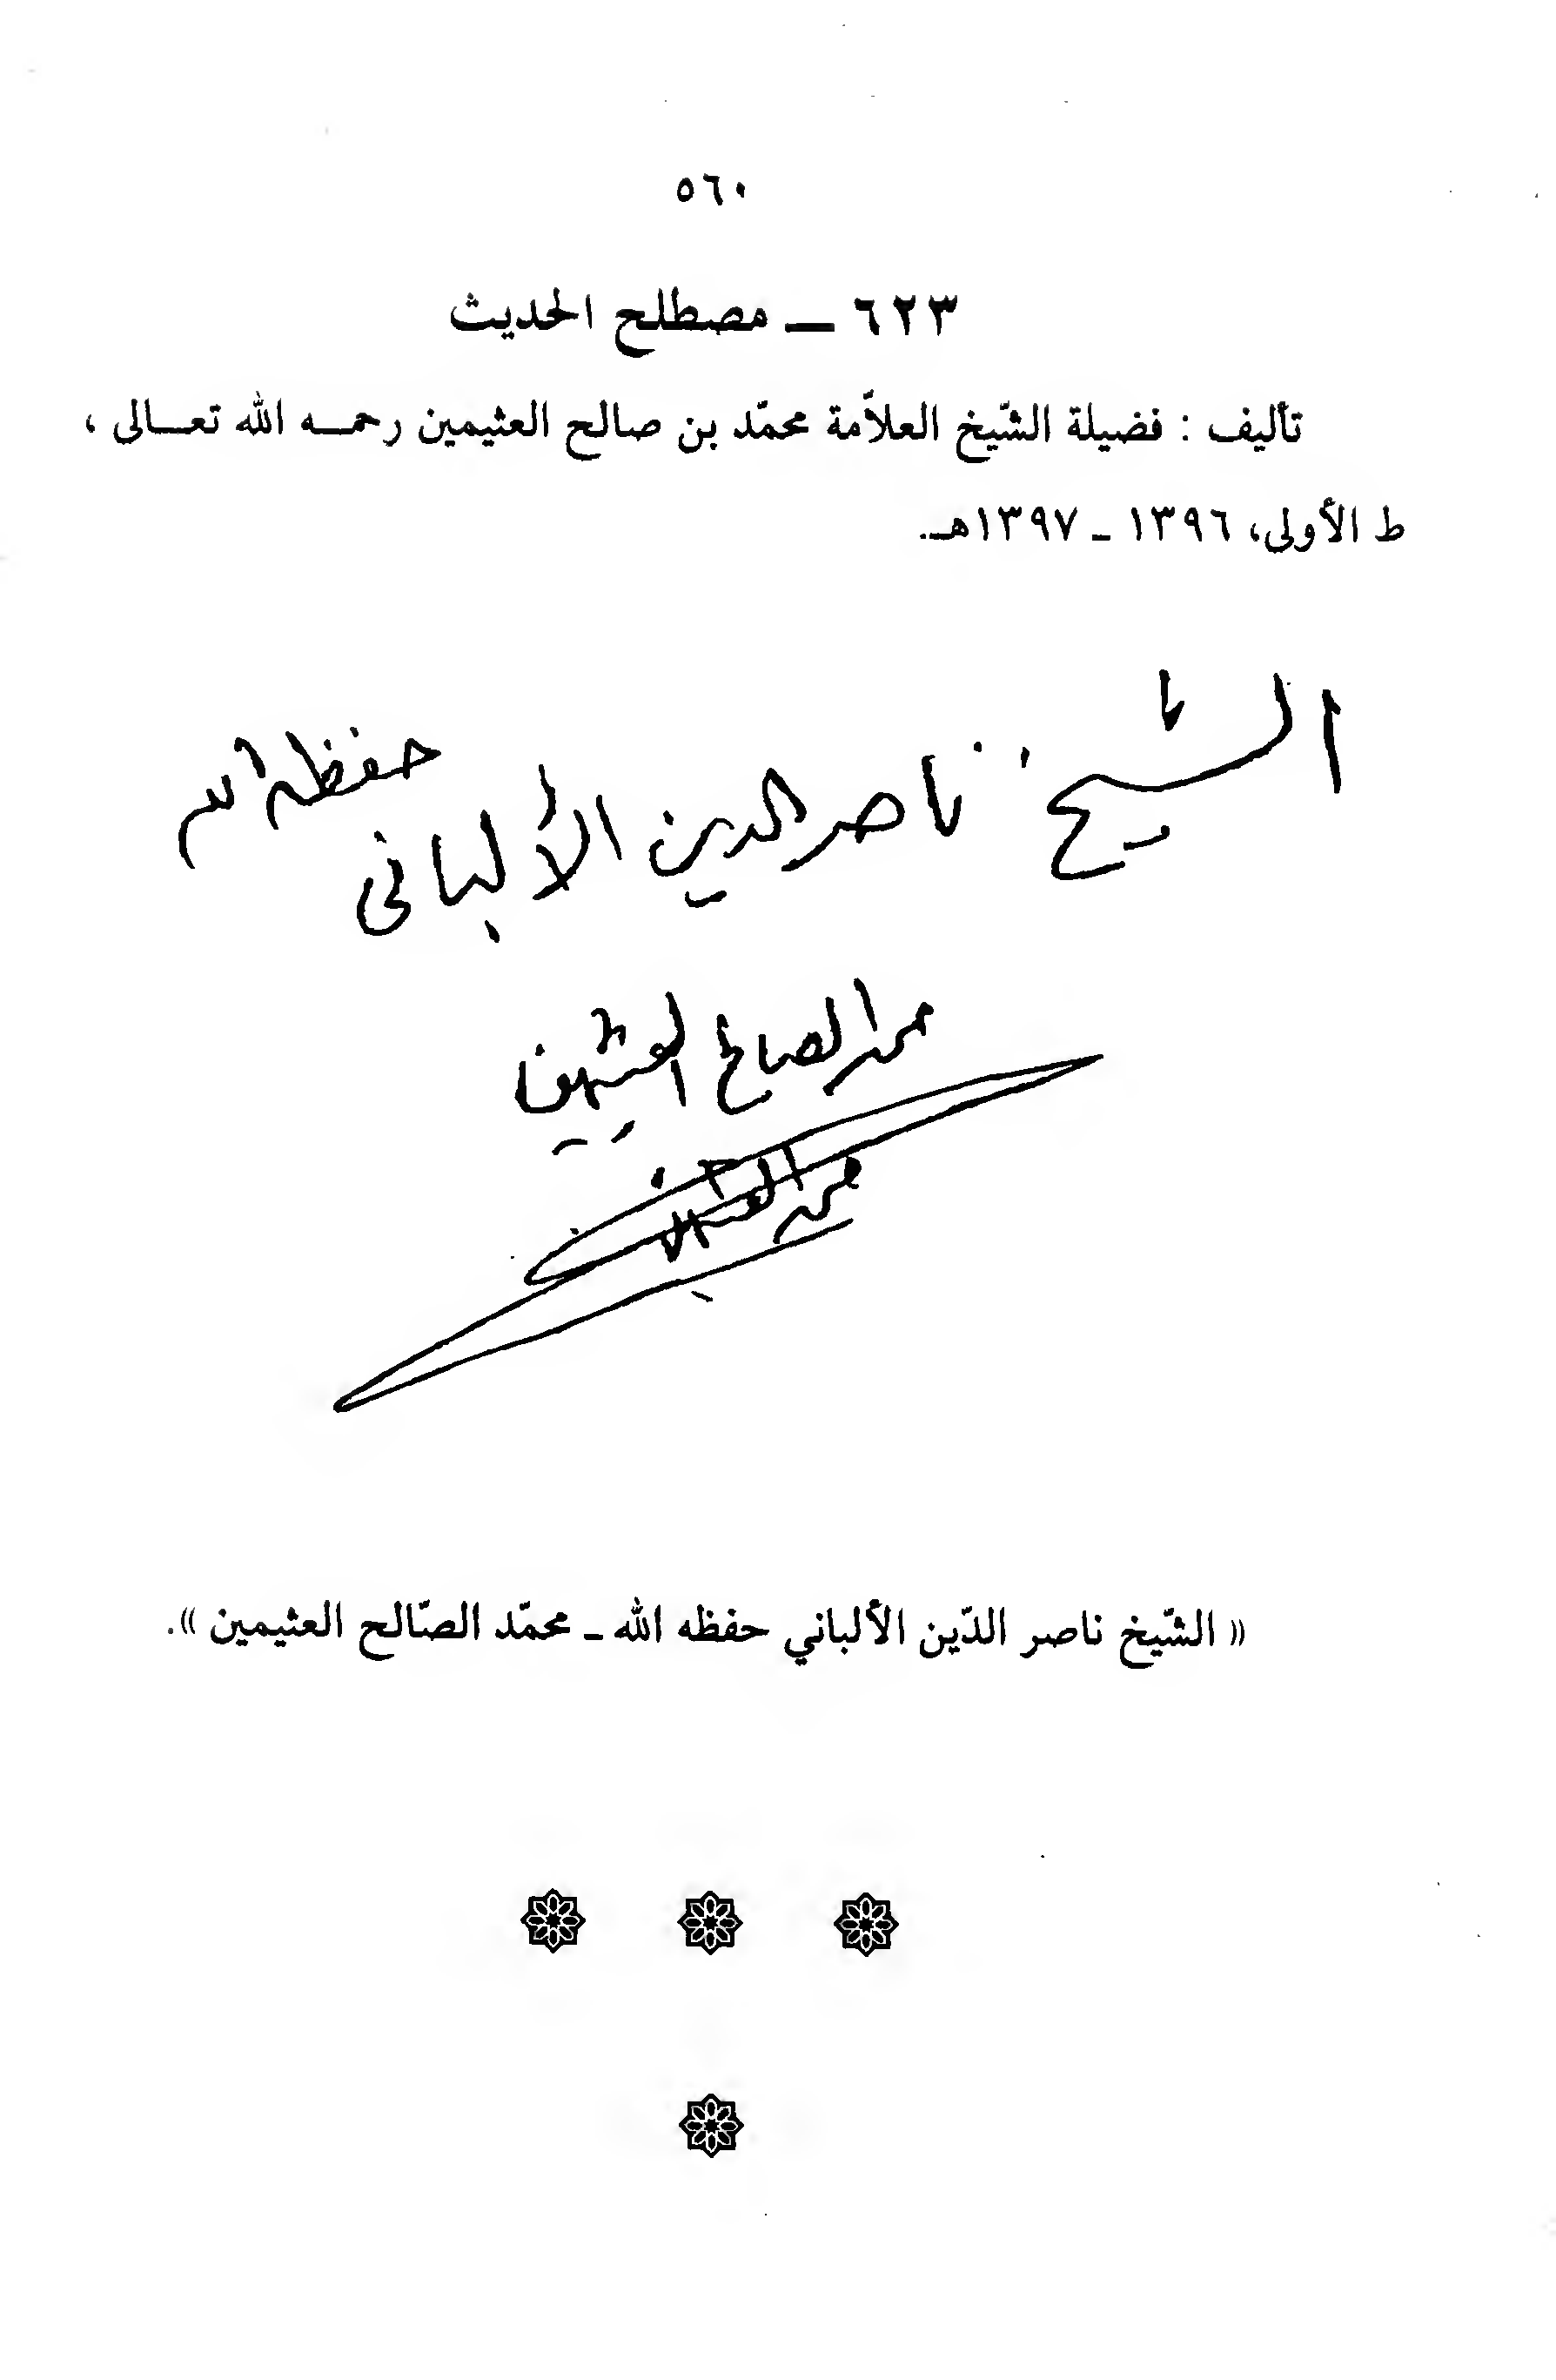 ٥٦٠
٦٢٣ ــ مصطلح الحديث
تأليف : فضيلة الشّيخ العلاّمة محمّد بن صالح العثيمين رحمــه الله تعــالى ،
ط الأولى، ١٣٩٦ ـ ١٣٩٧هـ.
الشيخ ناصر الدين الألباني حفظه الله
محمد الصالح العثيمين
محمد العثيمين
(( الشّيخ ناصر الدّين الألباني حفظه الله ـ محمّد الصّالح العثيمين )).